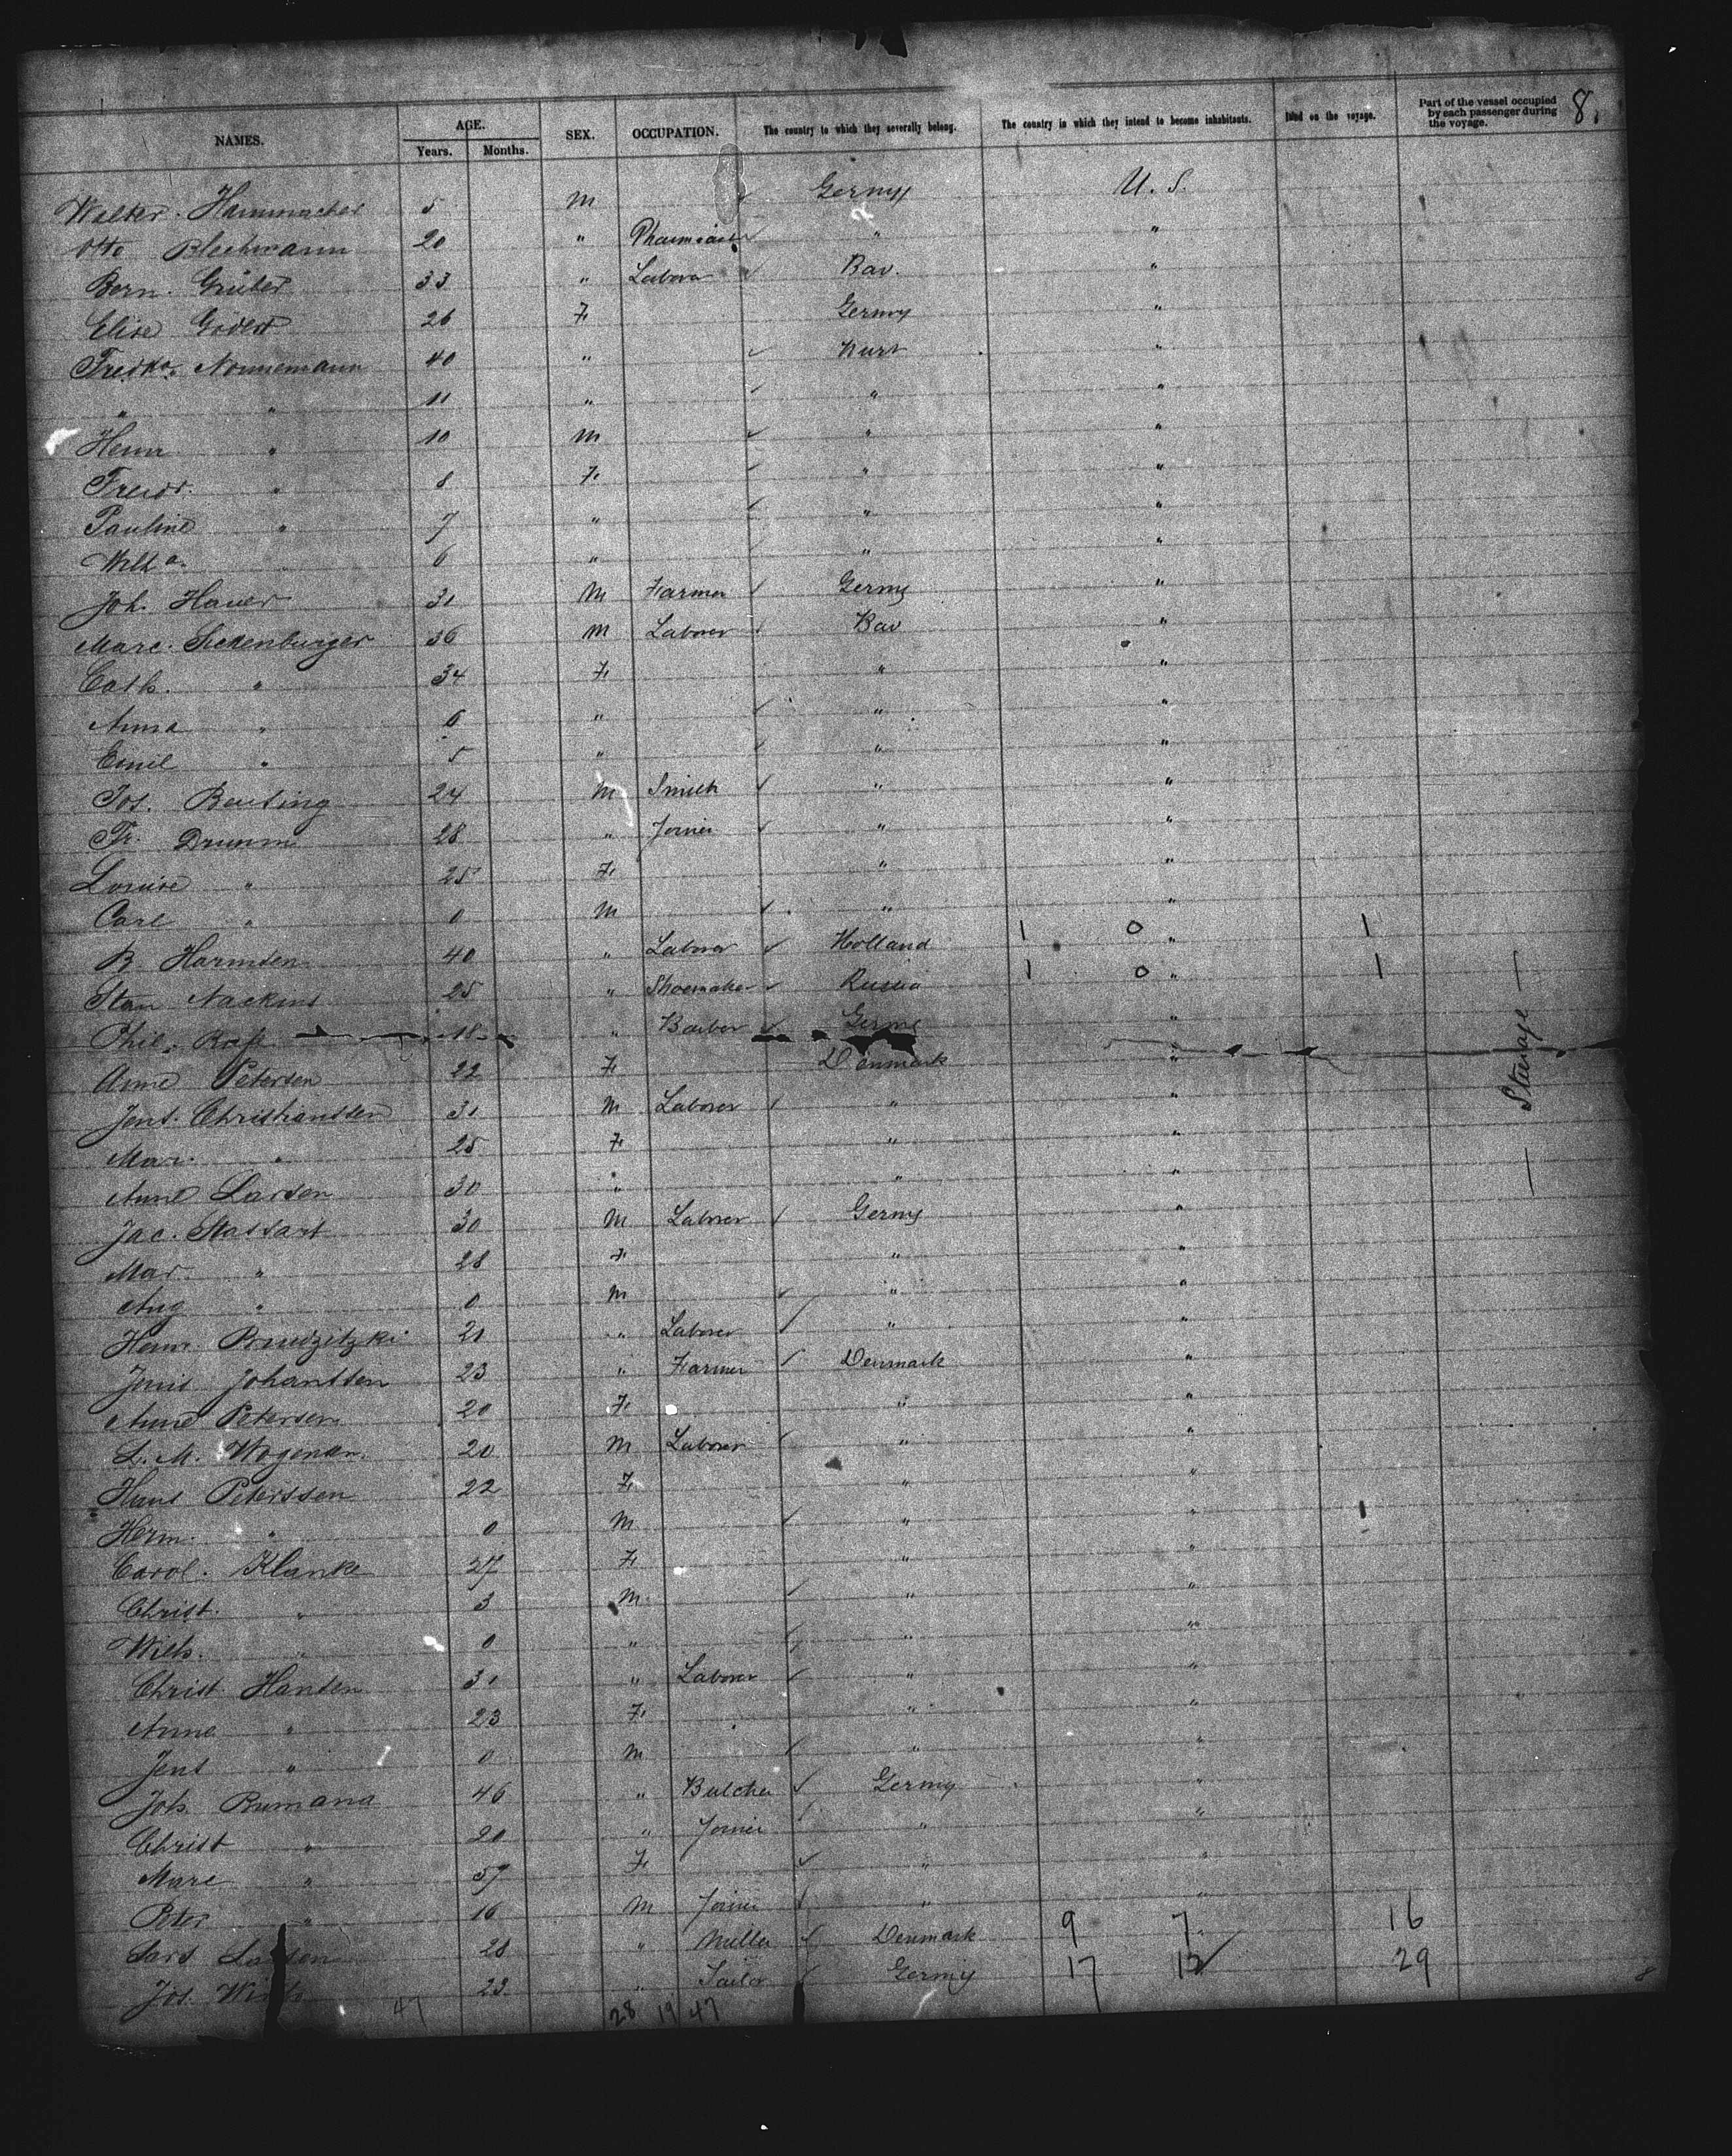 8.
NAMES. AGE. SEX. OCCUPATION. The country to which they severally belong. The country in which they intend to become inhabitants. Died on the voyage. Part of the vessel occupied by each passenger during the voyage.
Years. Months.
Walter Hammacher 5 M Germy U. S.
Otto Blechmann 20 " " "
Bern. Grüber 33 " Labor Bav. "
Elise 26 F. Germy "
Fredke. Nonnemann 40 " Wurt "
" " 11 " " "
Heinr " 10 M " "
Friedr. " 8 F. " "
Pauline " 7 " " "
Wilha. " 6 " " "
Joh. Hauer 31 M Farmer Germy "
Marc. 36 M Laborer Bav "
Cath. " 34 F. " "
Anna " 6 " " "
Emil " 5 " " "
Jos. Beuting 24 M Smith " "
Fr. Drumm 28 " Joiner " "
Louise " 25 F. " "
Carl " 0 M " "
B Harmsen 40 " Laborer Holland 1 0 " 1
Stan 25 " Shoemaker Russia 1 0 " 1
Phil. 18 " Barber Germy "
Anne Petersen 22 F. Denmark "
Jens. Christiansen 31 M Laborer " "
Mar. " 25 F " "
Anne Larsen 30 " " "
Jac. Stassart 30 M Laborer Germy "
Mar. " 28 F " "
Aug " 0 M " "
Heinr. 21 " Laborer " "
Jens Johanssen 23 " Farmer Denmark "
Anne Petersen 20 F. " "
L. M. 20 M Laborer " "
Hans Peterssen 22 F. " "
Herm. " 0 M " "
Carol. Klanke 27 F. " "
Christ. " 3 M. " "
Wilh. " 0 " " "
Christ Hansen 31 " Laborer " "
Anne " 23 F. " "
Jens " 0 M " "
Joh. 46 " Butcher Germy "
Christ " 20 " Joiner " "
Marc " 57 F. " "
Peter " 16 M Joiner " "
Lars 28 " Miller Denmark 9 7 16
Jos. 23 " Germy 17 12 29
47 28 19 47
— Steerage —
8